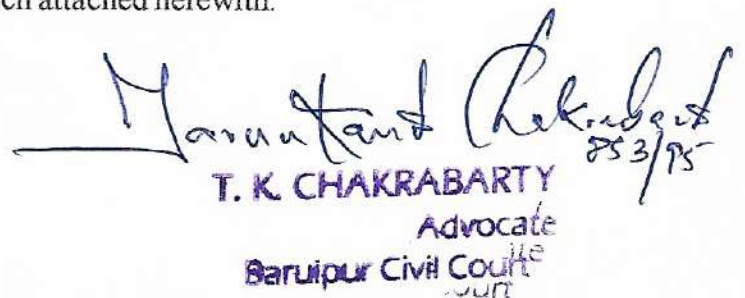 ch attached herewith.
Tarun Kanti Chakrabarti
853/95
T. K. CHAKRABARTY
Advocate
Baruipur Civil Court